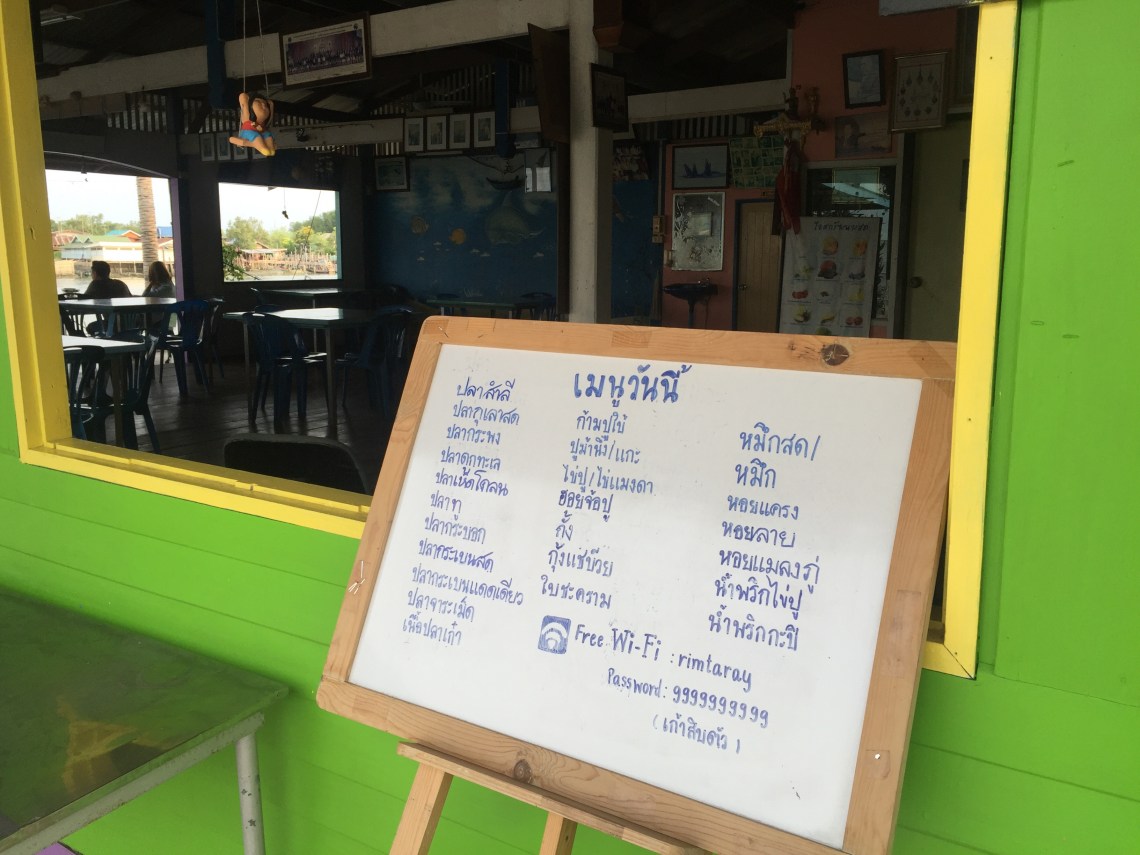 เมนูวันนี้
ปลาสำลี
ปลากุเลาสด
ปลากระพง
ปลาดุกทะเล
ปลาเห็ดโคลน
ปลาทู
ปลากระบอก
ปลากระเบนสด
ปลากระเบนแดดเดียว
ปลาจาระเม็ด
เนื้อปลาเก๋า
ก้ามปูใบ้
ปูม้านึ่ง/แกะ
ไข่ปู/ไข่แมงดา
ฮ่อยจ้อปู
กั้ง
กุ้งแช่บ๊วย
ใบชะคราม
หมึกสด/
หมึก
หอยแครง
หอยลาย
หอยแมลงภู่
น้ำพริกไข่ปู
น้ำพริกกะปิ
Free Wi-Fi : rimtaray
Password : 9999999999
(เก้าสิบตัว)